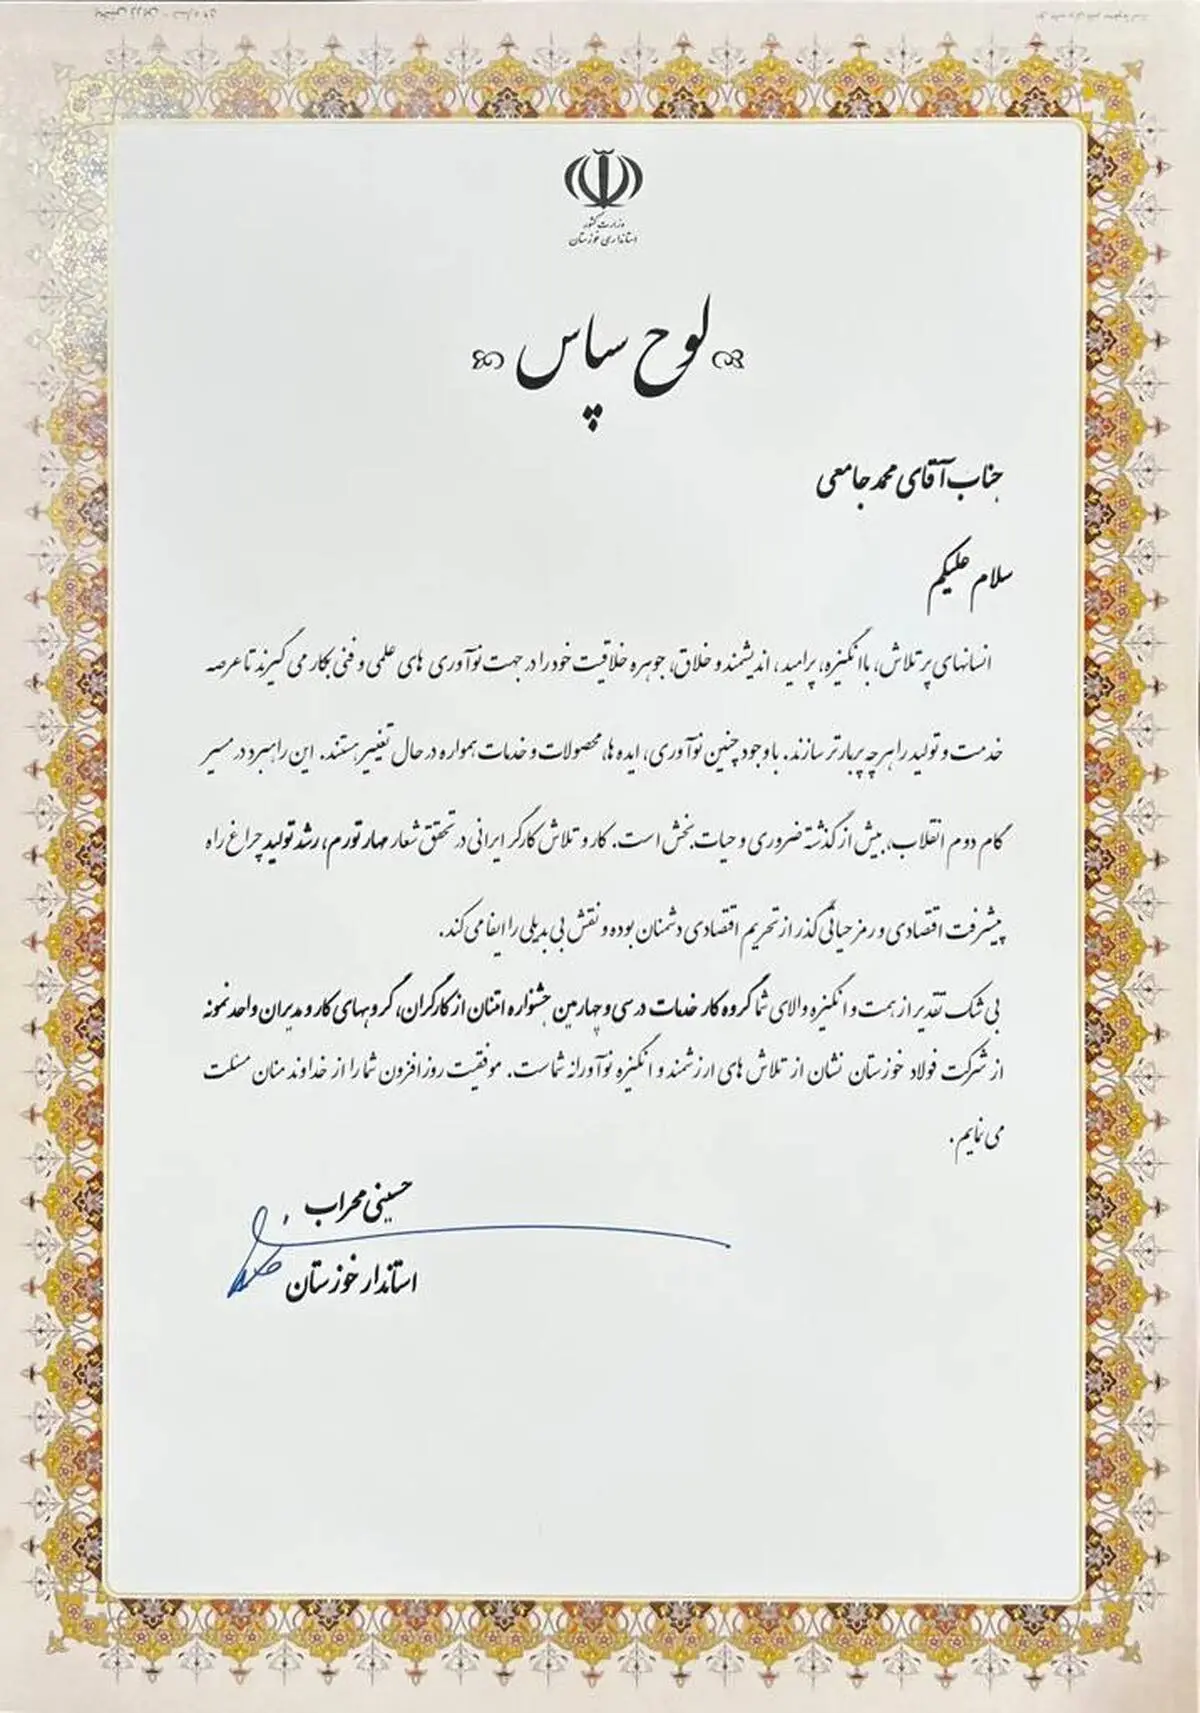 وزارت کشور
استانداری خوزستان
لوح سپاس
جناب آقای محمد جامعی
سلام علیکم
انسانهای پر تلاش، باانگیزه، پرامید، اندیشمند و خلاق، جوهره خلاقیت خود را در جهت نوآوری های علمی و فنی بکار می گیرند تا عرصه
خدمت و تولید را هرچه پربارتر سازند. با وجود چنین نوآوری، ایده ها، محصولات و خدمات همواره در حال تغییر هستند. این راهبرد در مسیر
گام دوم انقلاب، بیش از گذشته ضروری و حیات بخش است. کار و تلاش کارگر ایرانی در تحقق شعار مهار تورم، رشد تولید چراغ راه
پیشرفت اقتصادی و رمز حیاتی گذر از تحریم اقتصادی دشمنان بوده و نقش بی بدیلی را ایفا می کند.
بی شک تقدیر از همت و انگیزه والای شما گروه کار خدمات در سی و چهارمین جشنواره امتنان از کارگران، گروههای کار و مدیران واحد نمونه
از شرکت فولاد خوزستان نشان از تلاش های ارزشمند و انگیزه نوآورانه شماست. موفقیت روز افزون شما را از خداوند منان مسئلت
می نمایم.
حسینی محراب
استاندار خوزستان